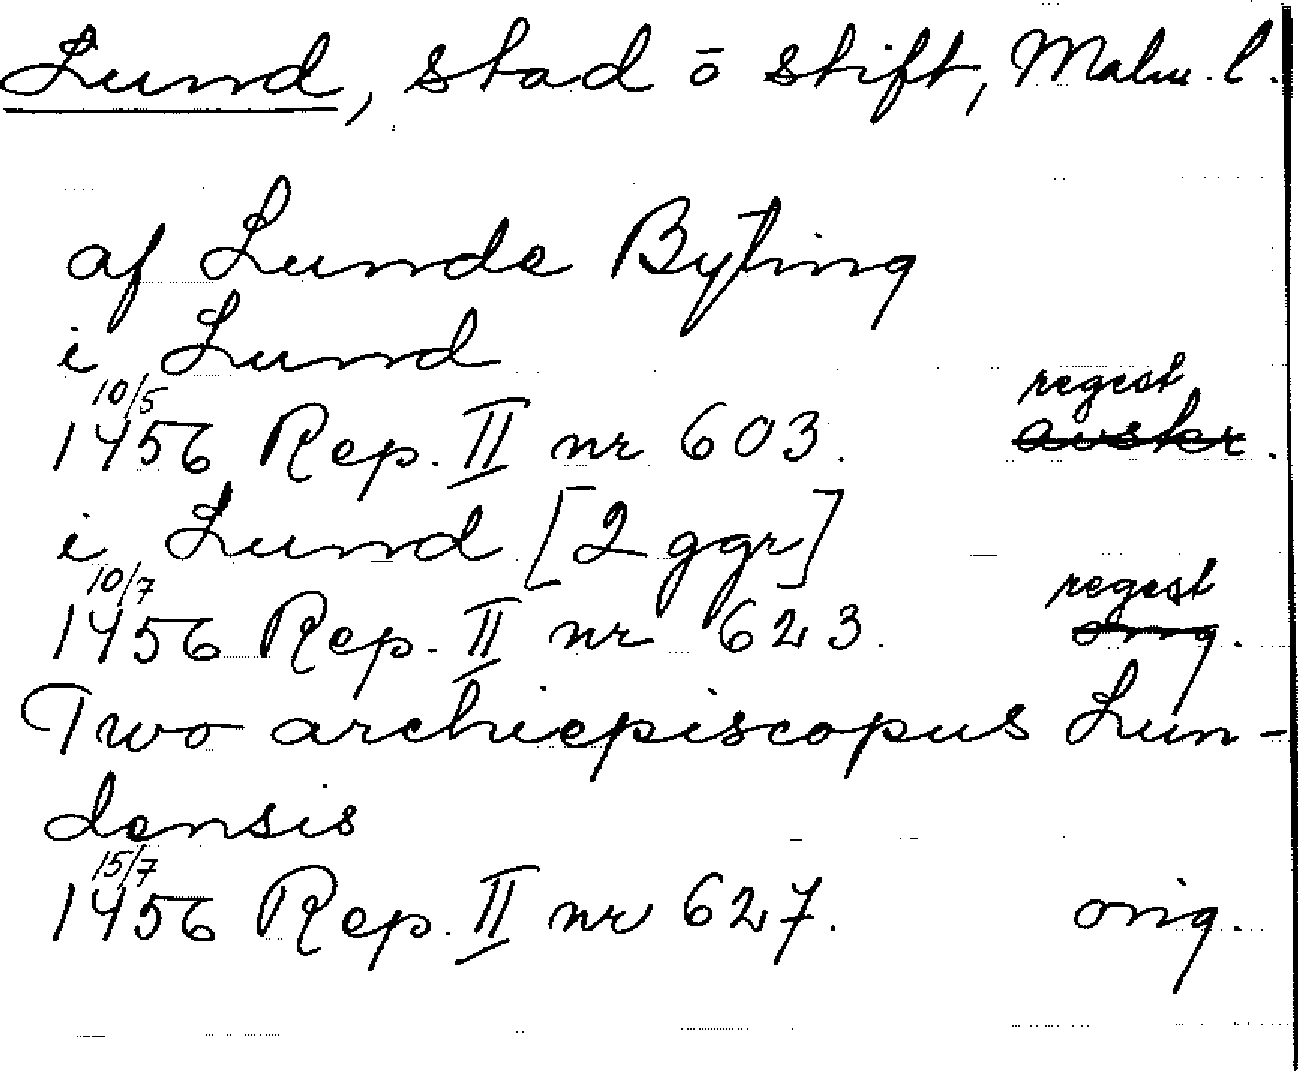 Lund, stad o stift, Malm. l.
af Lunde Byting
i Lund
10/5 regest
1456 Rep. II nr 603. avskr.
i Lund [2 ggr]
10/7 regest
1456 Rep. II nr 623. orig.
Two archiepiscopus Lun-
densis
15/7
1456 Rep. II nr 627. orig.